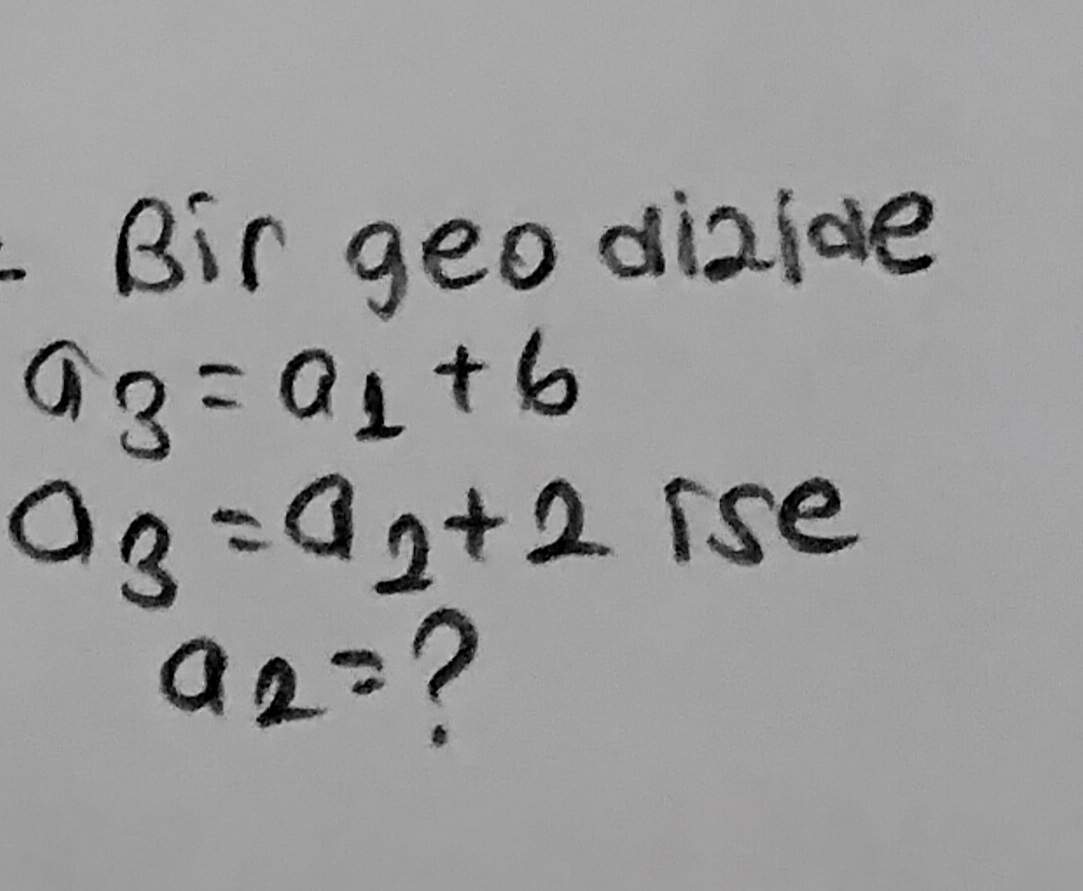 - Bir geo dizide
a₃ = a₁ + 6
a₃ = a₂ + 2 ise
a₂ = ?